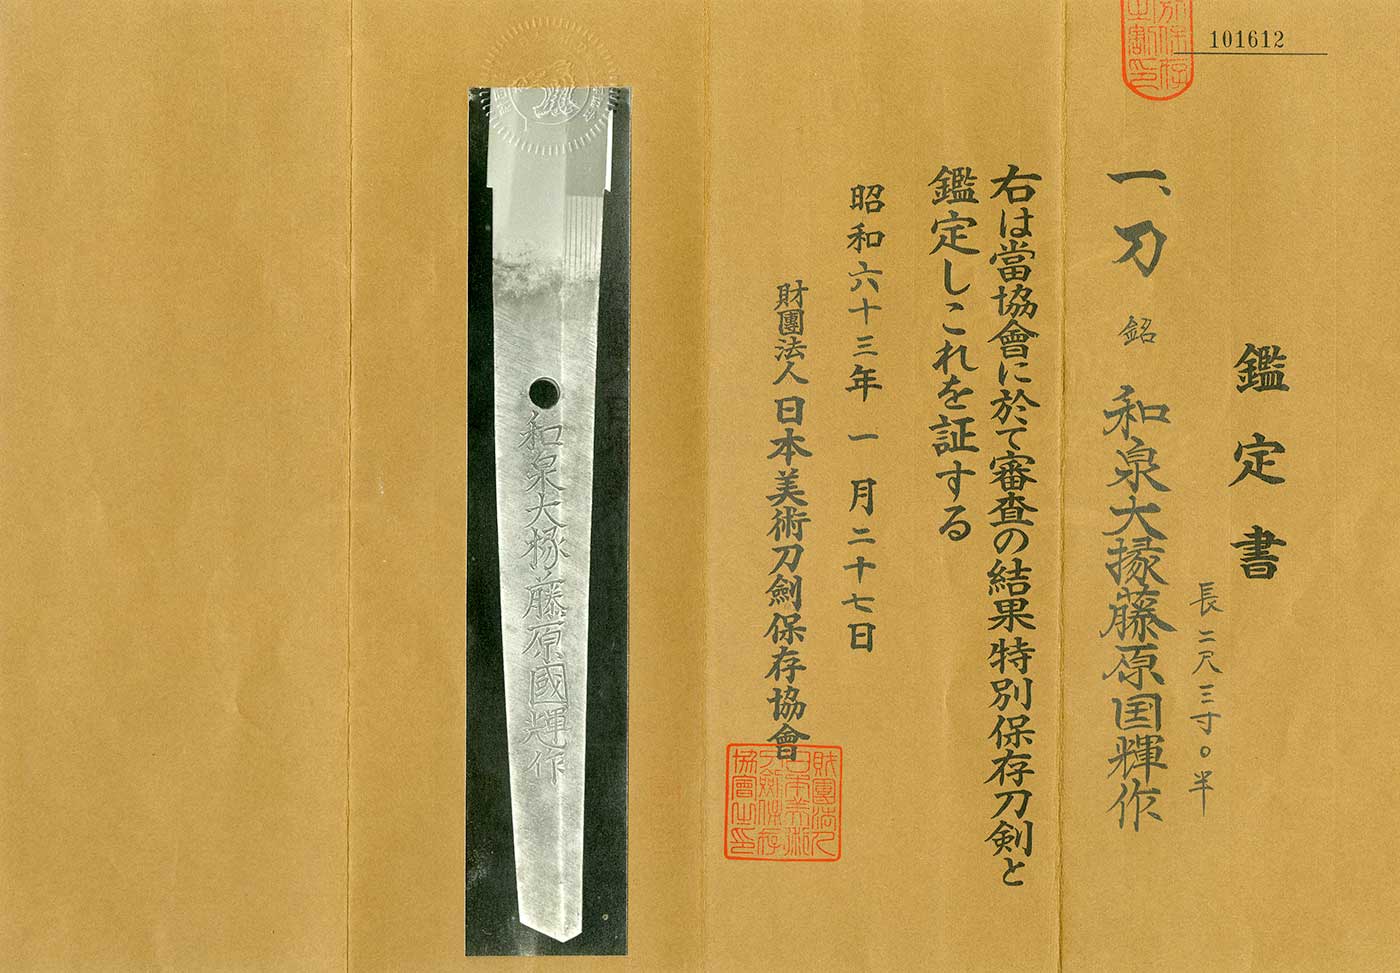 101612
別保存
之割印
鑑定書
長二尺三寸〇半
一、刀 銘 和泉大掾藤原国輝作
右は當協會に於て審査の結果特別保存刀剣と
鑑定しこれを証する
昭和六十三年一月二十七日
財團法人日本美術刀劍保存協會
財團法人
日本美術
刀劍保存
協會之印
和泉大掾藤原國輝作